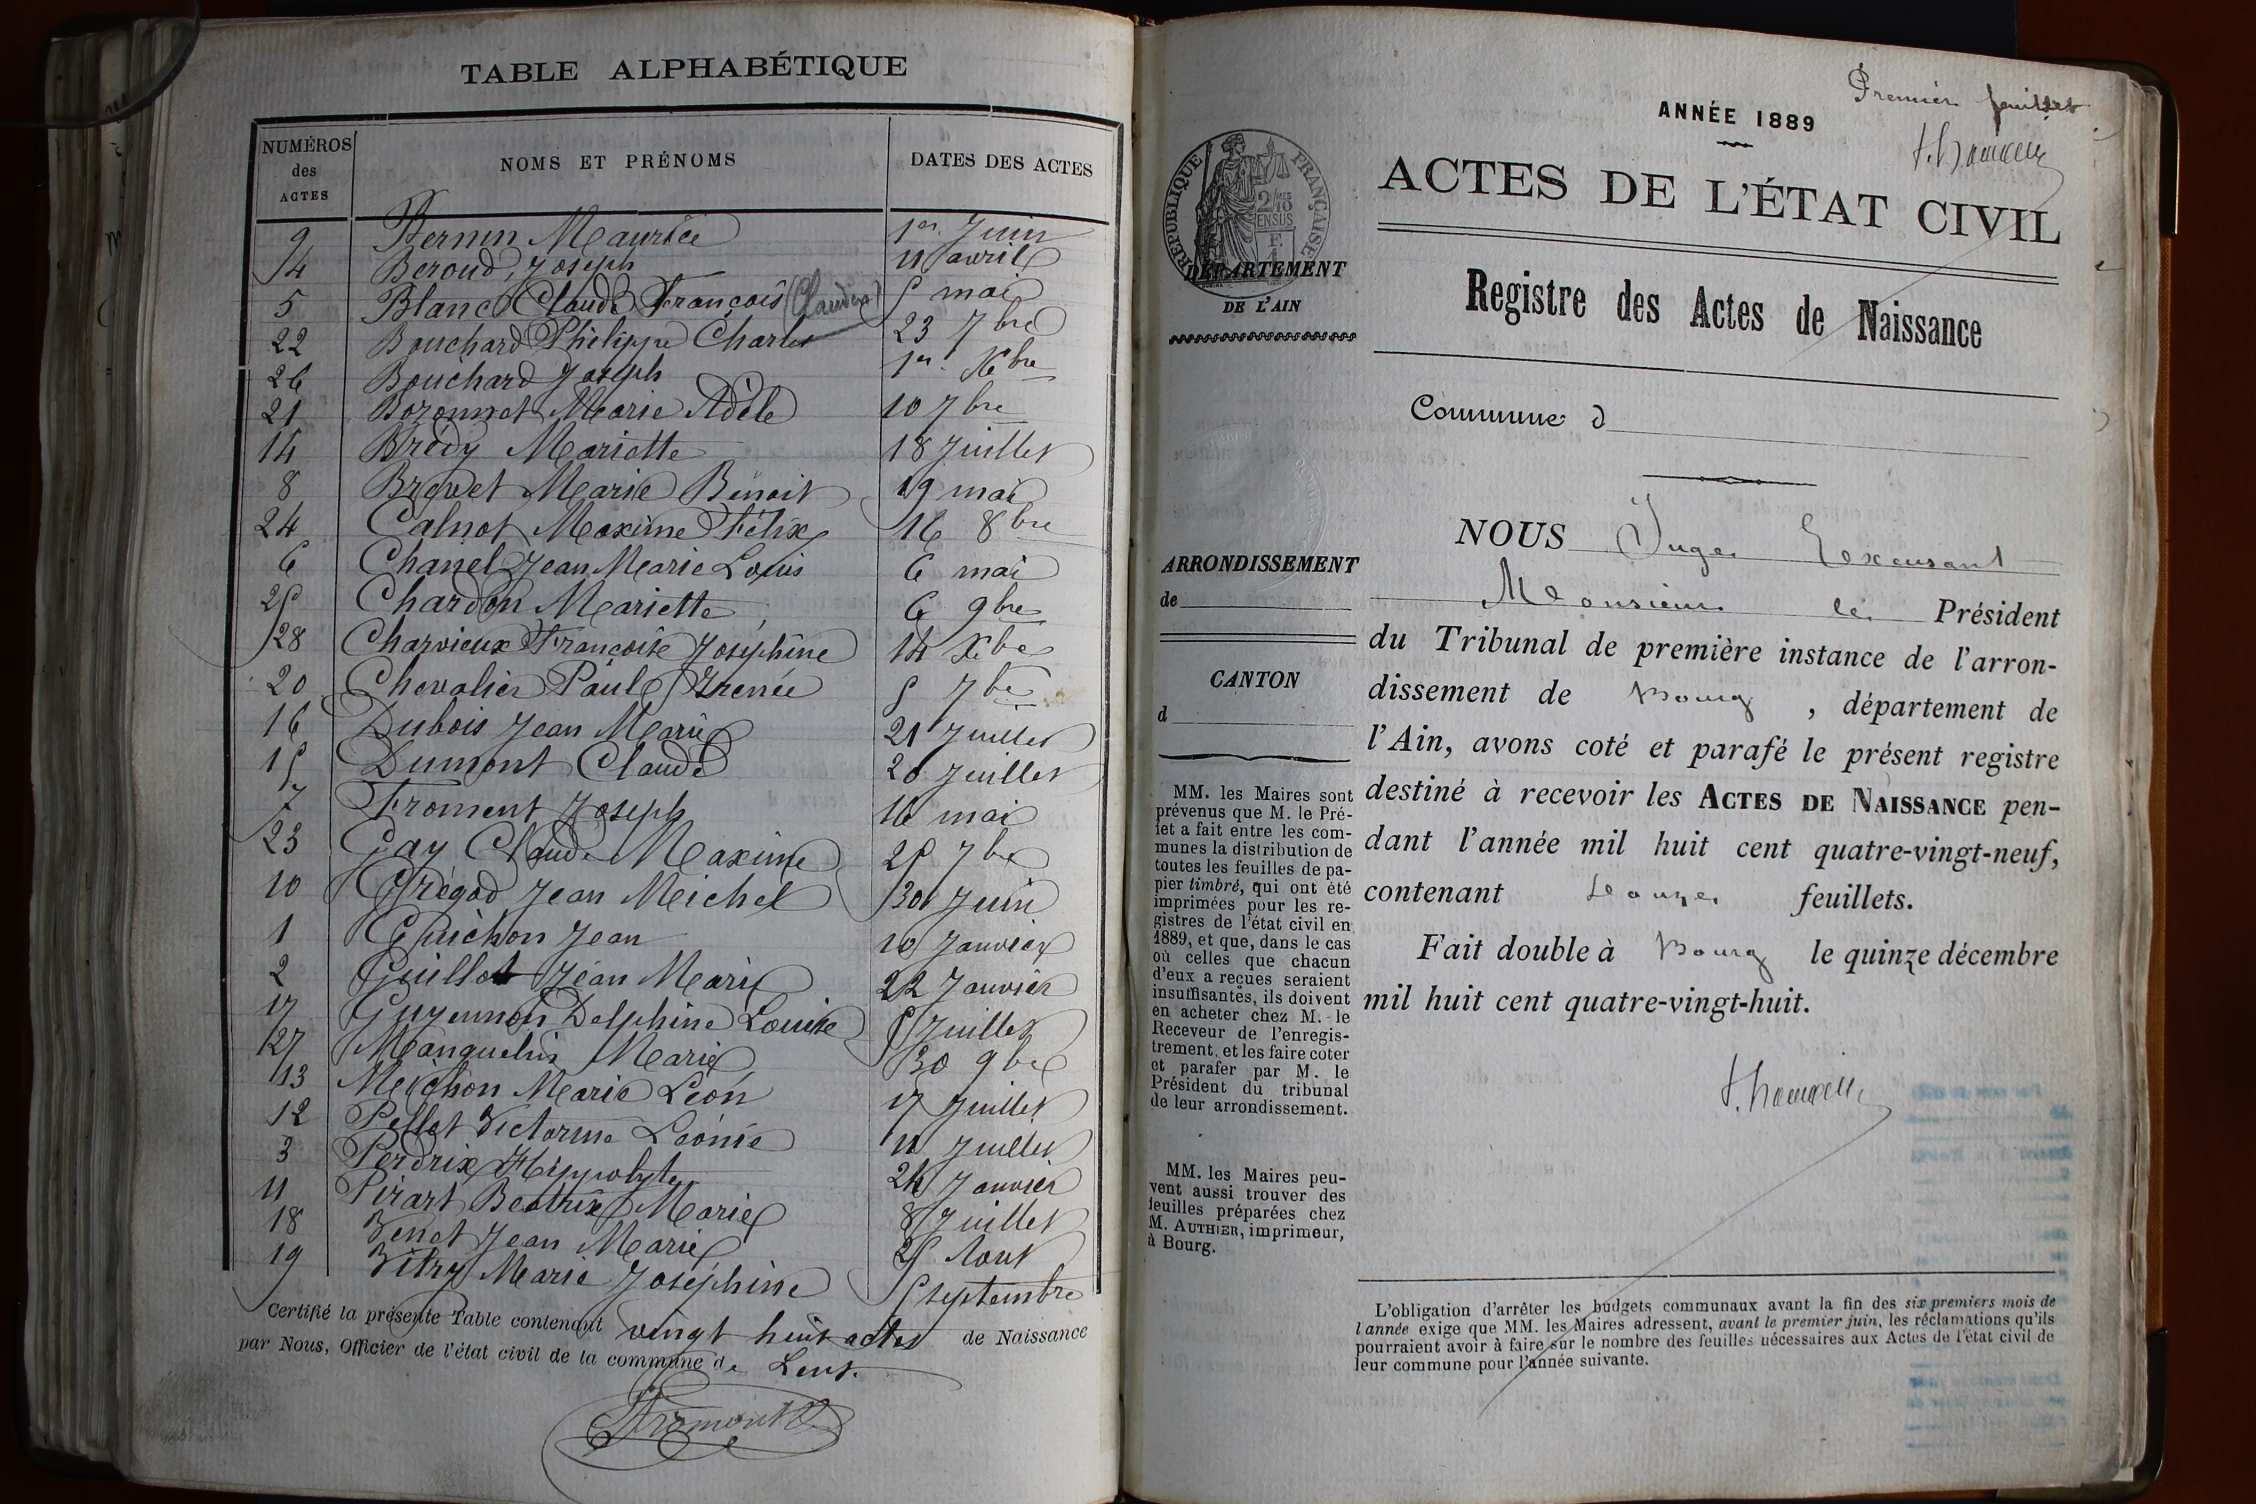 TABLE ALPHABÉTIQUE
NUMÉROS des ACTES NOMS ET PRÉNOMS DATES DES ACTES
9 Bernin Maurice 1er Juin
4 Beroud Joseph 11 avril
5 Blanc Claude François (Claudius) 5 mai
22 Bouchard Philippe Charles 23 7bre
26 Bouchard Joseph 1er Xbre
21 Bozonnet Marie Adèle 10 7bre
14 Brédy Mariette 18 Juillet
8 Brevet Marie Benoit 19 mai
24 Calnot Maxime Félix 16 8bre
6 Chanel Jean Marie Louis 6 mai
25 Chardon Mariette 6 9bre
28 Charvieux Françoise Joséphine 14 Xbre
20 Chevalier Paul Irenée 5 7bre
16 Dubois Jean Marie 21 Juillet
15 Dumont Claude 20 Juillet
7 Froment Joseph 16 mai
23 Gay Claude Maxime 25 7bre
10 Grégod Jean Michel 30 Juin
1 Guichon Jean 10 Janvier
2 Guillot Jean Marie 22 Janvier
17 Guyennon Delphine Louise Juillet
27 Manguelin Marie 30 9bre
13 Merchon Marie Léon 17 Juillet
12 Pellet Victorine Léonie 11 Juillet
3 Perdrix Hippolyte 24 Janvier
11 Pirart Beatrix Marie 8 Juillet
18 Venet Jean Marie 25 Aout
19 Vitry Marie Joséphine 5 septembre
Certifié la présente Table contenant vingt huit actes de Naissance
par Nous, Officier de l'état civil de la commune de Lent.
Froment
Premier feuillet
ANNÉE 1889
ACTES DE L'ÉTAT CIVIL
RÉPUBLIQUE FRANÇAISE
2/10 EN SUS
DÉPARTEMENT
DE L'AIN
Registre des Actes de Naissance
Commune d
ARRONDISSEMENT
de
CANTON
d
NOUS Juge Excusant
Monsieur le Président
du Tribunal de première instance de l'arron-
dissement de Bourg, département de
l'Ain, avons coté et parafé le présent registre
destiné à recevoir les ACTES DE NAISSANCE pen-
dant l'année mil huit cent quatre-vingt-neuf,
contenant douze feuillets.
Fait double à Bourg le quinze décembre
mil huit cent quatre-vingt-huit.
MM. les Maires sont
prévenus que M. le Pré-
fet a fait entre les com-
munes la distribution de
toutes les feuilles de pa-
pier timbré, qui ont été
imprimées pour les re-
gistres de l'état civil en
1889, et que, dans le cas
où celles que chacun
d'eux a reçues seraient
insuffisantes, ils doivent
en acheter chez M. le
Receveur de l'enregis-
trement, et les faire coter
et parafer par M. le
Président du tribunal
de leur arrondissement.
MM. les Maires peu-
vent aussi trouver des
feuilles préparées chez
M. AUTHIER, imprimeur,
à Bourg.
L'obligation d'arrêter les budgets communaux avant la fin des six premiers mois de
l'année exige que MM. les Maires adressent, avant le premier juin, les réclamations qu'ils
pourraient avoir à faire sur le nombre des feuilles nécessaires aux Actes de l'état civil de
leur commune pour l'année suivante.